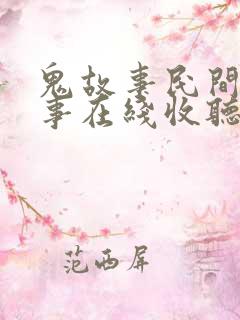 鬼故事民間
事在綫收聽
范西屏